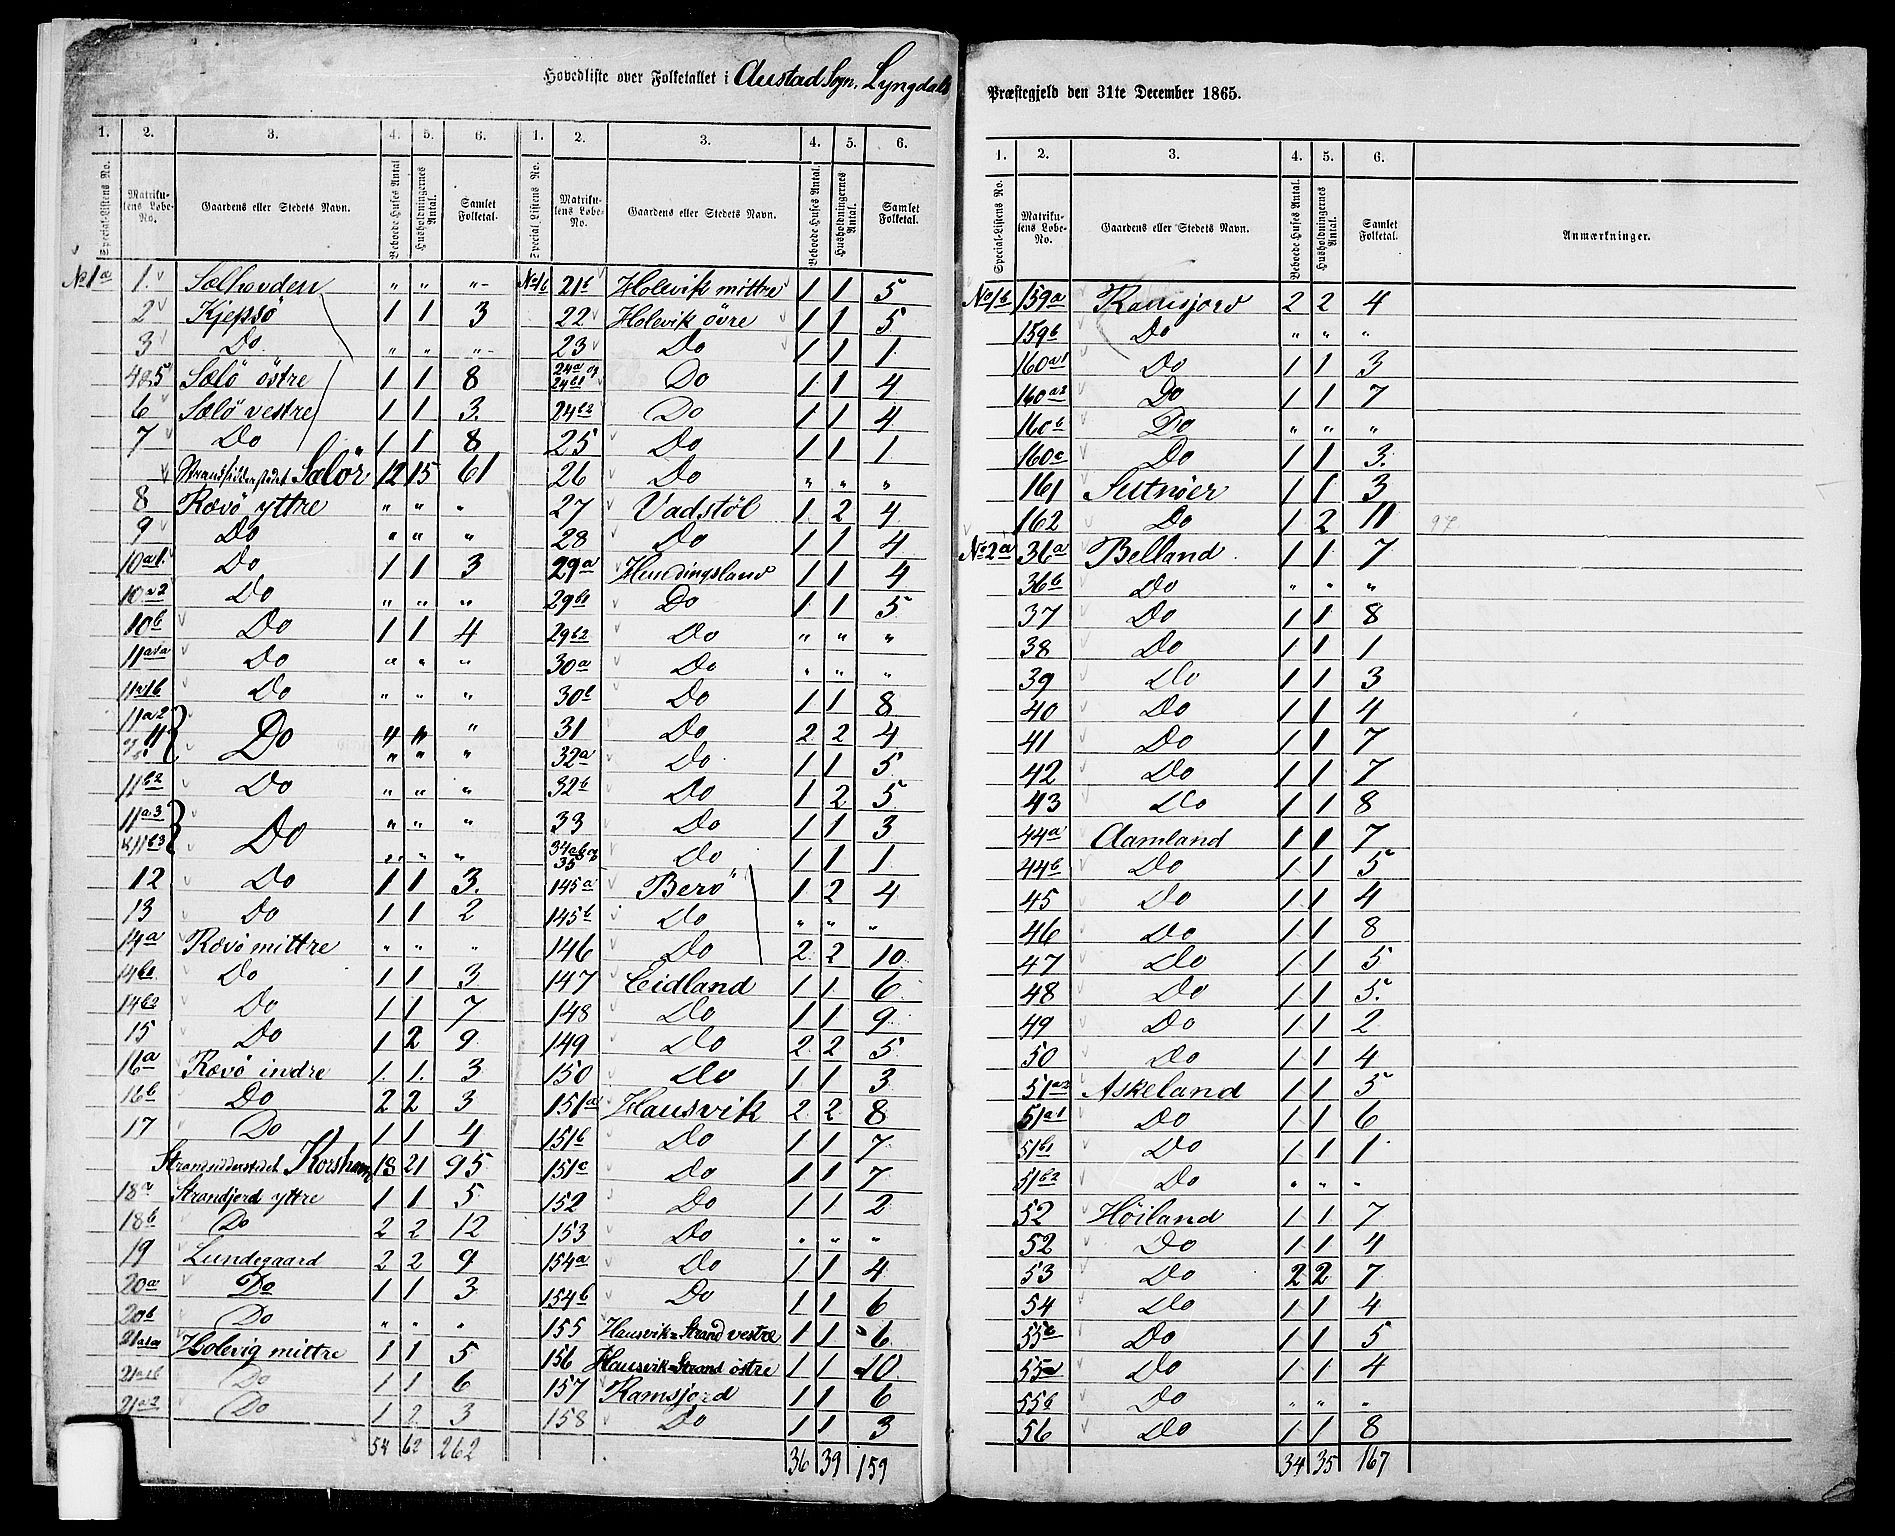 Hovedliste over Folketallet i Austad Sogn, Lyngdals
1. 2. 3. 4. 5. 6. 1. 2. 3. 4. 5. 6.
Special-Listens No. Matrikulens Løbe-No. Gaardens eller Stedets Navn. Beboede Huses Antal Husholdningernes Antal. Samlet Folketal.
Special-Listens No. Matrikulens Løbe-No. Gaardens eller Stedets Navn. Beboede Huses Antal. Husholdningernes Antal. Samlet Folketal.
No 1a 1. Sælhovden " " "
2 Kjepsö 1 1 3
3 Do " " "
4&5 Sælö östre 1 1 8
6 Sælö vestre 1 1 3
7 Do 1 1 8
Strandsidderstedet Sælör 12 15 61
8 Rævö yttre " " "
9 Do " " "
10a1. Do 1 1 3
10a2 Do " " "
10b Do 1 1 4
11a1a Do " " "
11a1b Do " " "
11a2 Do " " "
" " "
11b2 Do " " "
11a3 Do " " "
&11b3 " " "
12 Do 1 1 3.
13 Do 1 1 2
14a Rævö mittre " " "
14b1 Do 1 1 3
14b2 Do 1 1 7
15 Do 1 2 9
16a Rævö indre 1. 1. 3
16b Do 2 2 3
17 Do 1 1 4
Strandsidderstedet Korshavn 18 21 95
18a Strandjord yttre 1 1 5
18b Do 2 2 12
19 Lundegaard 2 2 9
20a Do 1 1 3
20b Do " " "
21a1a Holevig mittre 1 1 5
21a1b Do 1 1 6
21a2 Do 1 2 3
54 62 262
No 1b 21b Holevik mittre 1 1 5
22 Holevik övre 1 1 5
23 Do 1 1 1
24a og 24b1 Do 1 1 4
24b2 Do 1 1 4
25 Do 1 1 1
26 Do " " "
27 Vadstöl 1 2 4
28 Do 1 1 4
29a Huudingsland 1 1 4
29b1 Do 1 1 5
29b2 Do " " "
30a Do " " "
30b Do 1 1 8
31 Do 2 2 4
32a Do 1 1 5
32b Do 1 2 5
33 Do 1 1 3
34ab og 35 Do 1 1 1
145a Berö 1 2 4
145b Do " " "
146 Do 2 2 10
147 Eidland 1 1 6
148 Do 1 1 9
149 Do 2 2 5
150 Do 1 1 3
151a Hausvik 2 2 8
151b Do 1 1 7
151c Do 1 1 7
152 Do 1 1 2
153 Do " " "
154a Do 1 1 4
154b Do 1 1 6
155 Hausvik=Strand vestre 1 1 6
156 Hausvik=Strand östre 1 1 10
157 Ramsjord 1 1 6
158 Do 1 1 3
36 39 159
Præstegjeld den 31te December 1865.
1. 2. 3. 4. 5. 6.
Special-Listens No. Matrikulens Løbe-No. Gaardens eller Stedets Navn. Beboede Huses Antal. Husholdningernes Antal. Samlet Folketal. Anmærkninger.
No 1b 159a Ramsjord 2 2 4
159b Do " " "
160a1 Do 1 1 3
160a2 Do 1 1 7
160b Do " " "
160c Do 1 1 3.
161 Sutnöer 1 1 3
162 Do 1 2 11 97
No 2a 36a Belland 1 1 7
36b Do " " "
37 Do 1 1 8
38 Do 1 1 1
39 Do 1 1 3
40 Do 1 1 4
41 Do 1 1 7
42 Do 1 1 7
43 Do 1 1 8
44a Aamland 1 1 7
44b Do 1 1 5
45 Do 1 1 4
46 Do 1 1 8
47 Do 1 1 5
48 Do 1 1 5.
49 Do 1 1 2
50 Do 1 1 4
51a2 Askeland 1 1 5
51a1 Do 1 1 6
51b1 Do 1 1 1
51b2 Do " " "
52 Höiland 1 1 7
52 Do 1 1 4
53 Do 2 2 7
54 Do 1 1 4
55c Do 1 1 5
55a Do 1 1 4
55b Do " " "
56 Do 1 1 8
34 35 167